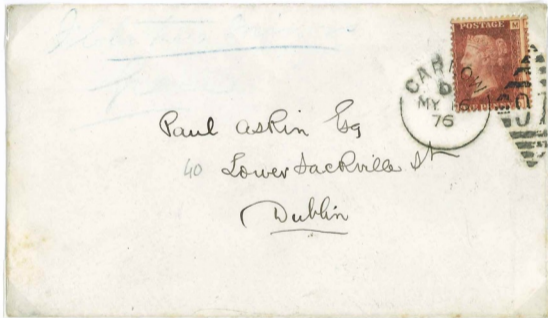 POSTAGE
CARLOW
D
MY 16
76
Paul Askin Esq
40 Lower Sackville St
Dublin